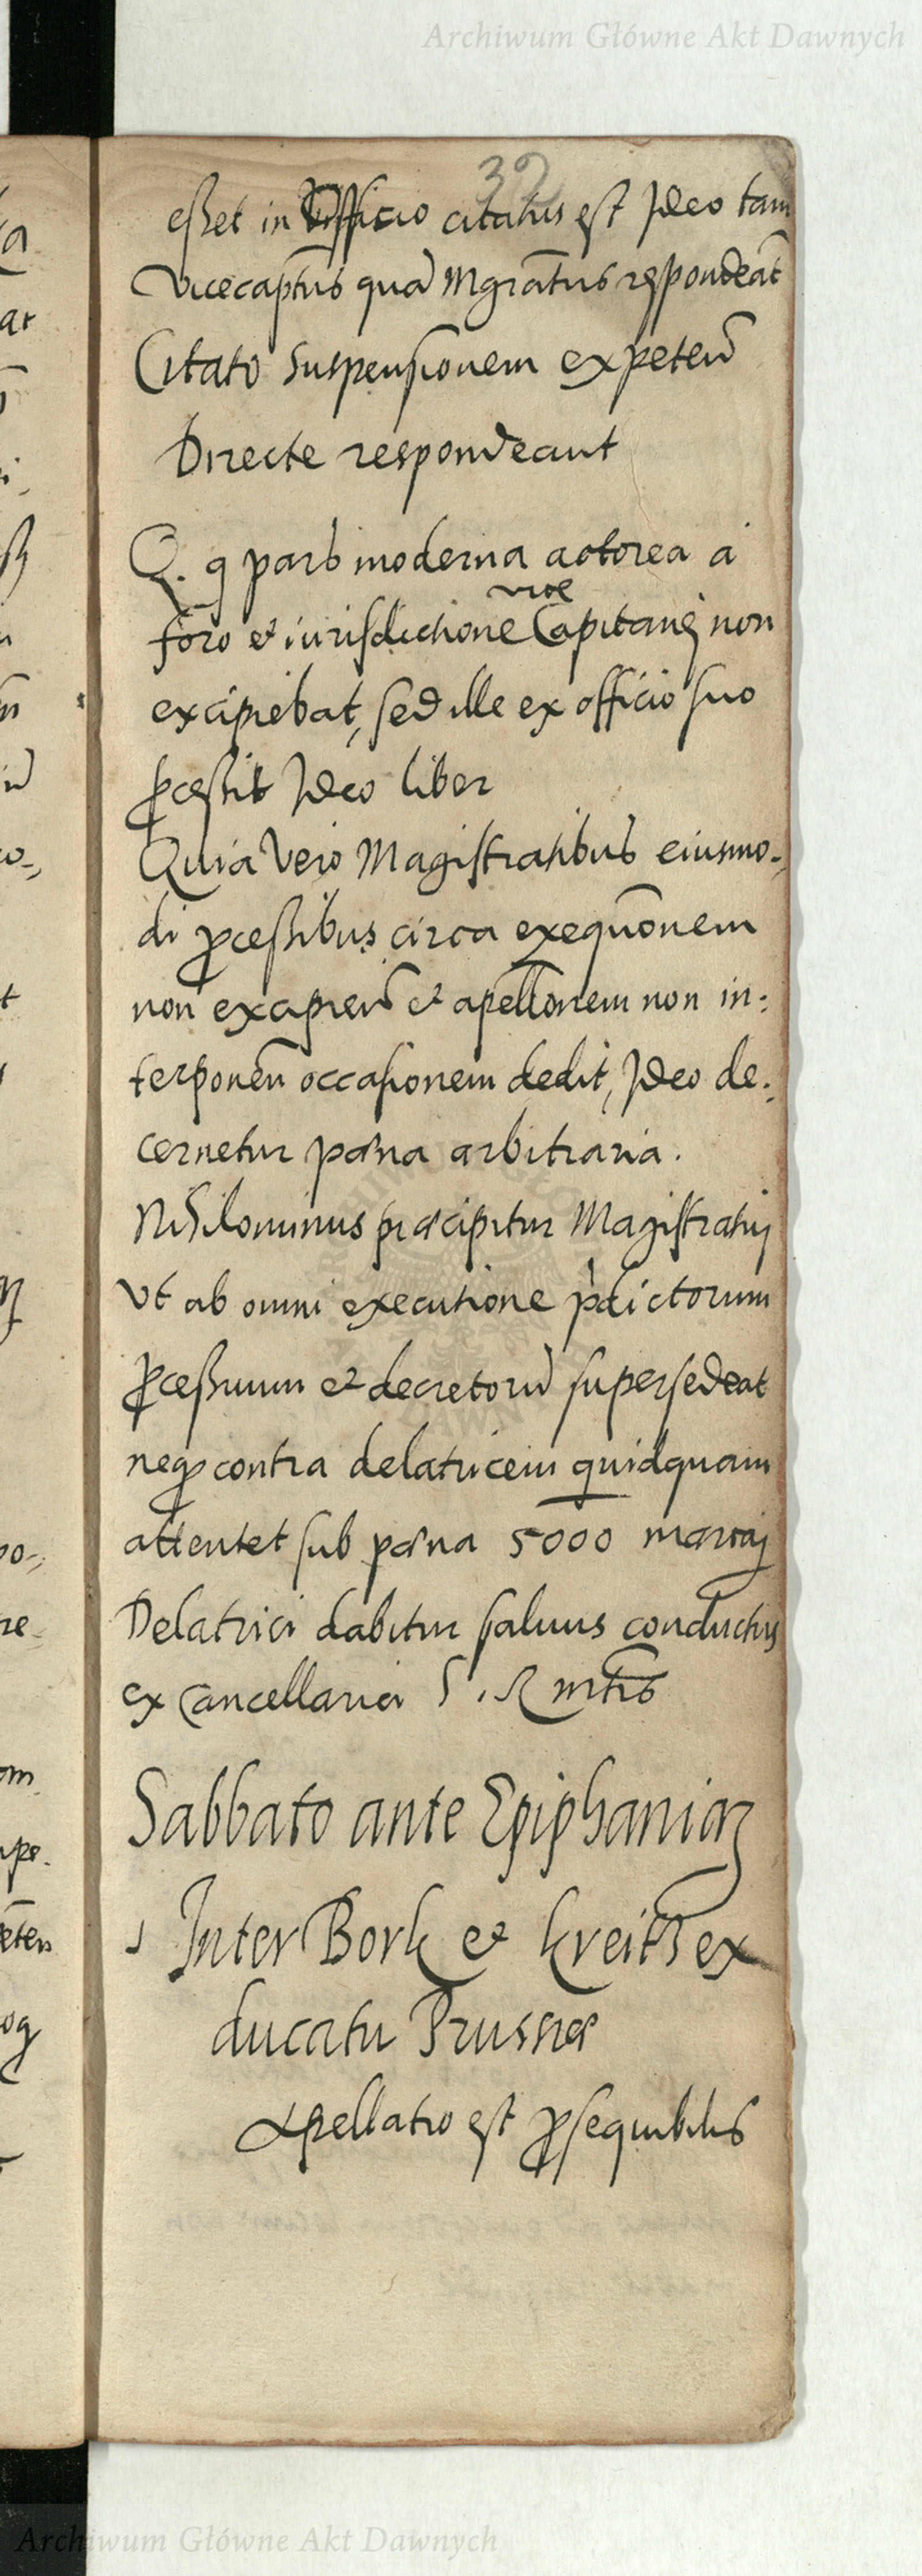 Archiwum Główne Akt Dawnych
39
eßet in officio citatus est Ideo tam
vicecaptūs quā Mgrātus respondeāt
Citato suspensionem expeteñ
Directe respondeant
Q. q pars moderna actorea a
vice
foro et iurisdictione Capitanei non
excipiebat, sed ille ex officio suo
pceßit Ideo liber
Quia vero Magistratibus eiusmo-
di pceßibus circa exequōnem
non excipieñ et apellōnem non in:
terponeñ occasionem dedit, Ideo de:
cernetur pæna arbitraria.
Nihilominus præcipitur Magistratuj
Vt ab omni executione pdictorum
pceßuum et decretorū supersedeat
neq contra delatricem quidquam
attentet sub pæna 5000 marcaȝ
Delatrici dabitur saluus conductus
ex Cancellaria S. R mtis
Sabbato ante Epiphaniaȝ
1 Inter Bork et Kreiths ex
ducatu Prussiæ
Apellatio est psequibilis
Archiwum Główne Akt Dawnych